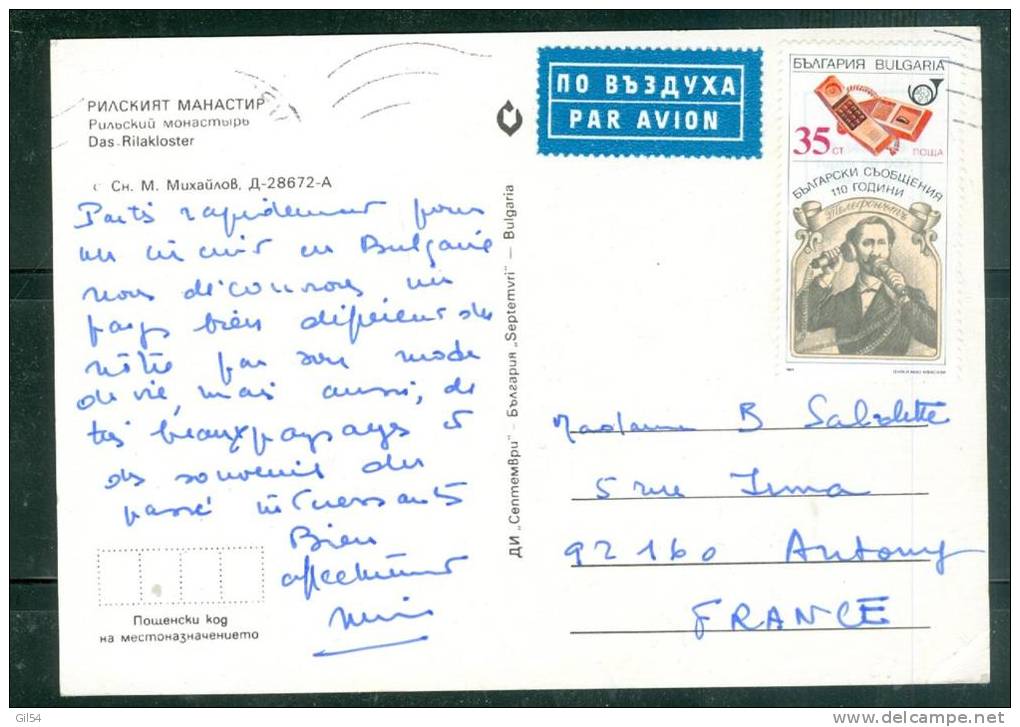 РИЛСКИЯТ МАНАСТИР
Рильский монастырь
Das Rilakloster
Сн. М. Михайлов, Д-28672-А
Partis rapidement pour
un circuit en Bulgarie
nous découvrons un
pays bien différent du
nôtre par son mode
de vie, mais aussi, de
très beaux paysages et
des souvenirs du
passé intéressants
Bien
affectueusement
Пощенски код
на местоназначението
ДИ „Септември" — България „Septemvri" — Bulgaria
ПО ВЪЗДУХА
PAR AVION
БЪЛГАРИЯ BULGARIA
35 СТ ПОЩА
БЪЛГАРСКИ СЪОБЩЕНИЯ
110 ГОДИНИ
Телефонътъ
Madame B
5 rue
92160 Antony
FRANCE
Gil54
delcampe.net